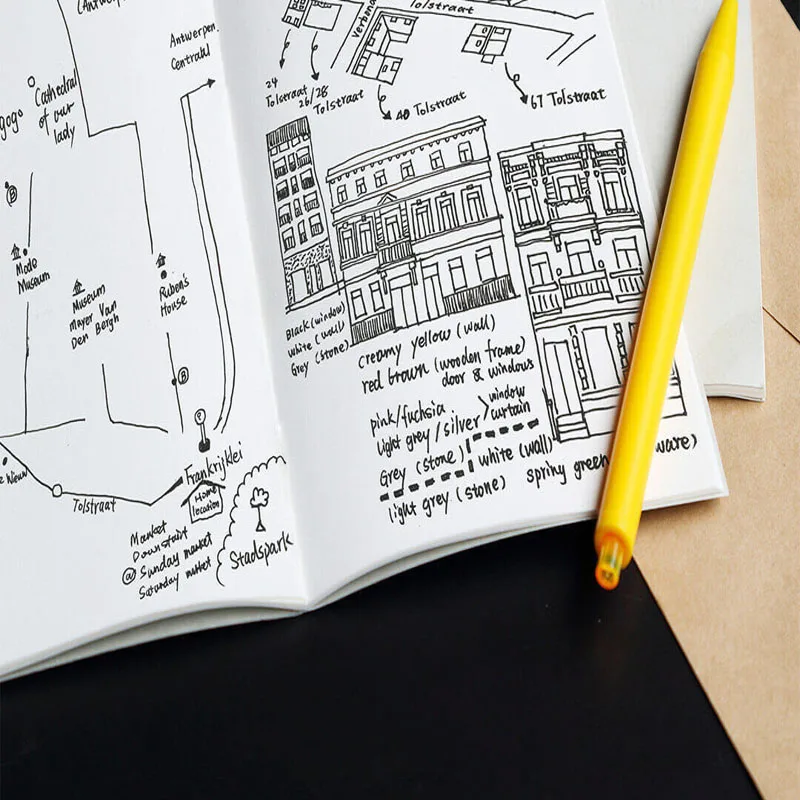 (Antwerpe
Antwerpen
Central
Cathedral
of our
lady
gogo
B
Mode
Museum
Museum
Mayer Van
Den Bergh
Ruben's
House
B
e Nieuw
Tolstraat
Frankrijklei
Home
location
Market
Downstairt
@ Sunday market
Saturday market
Stadspark
Tolstraat
24
Tolstraat
26/28
Tolstraat
40 Tolstraat
67 Tolstraat
Black (window)
white (wall)
Grey (stone)
creamy yellow (wall)
red brown (wooden frame)
door & windows
pink/fuchsia
light grey/silver
window
curtain
Grey (stone)
white (wall)
light grey (stone)
spring green
ware)